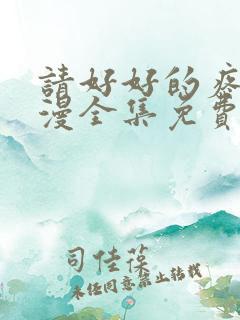 請好好的疼
漫全集免費
司佳葆
未经同意禁止转载